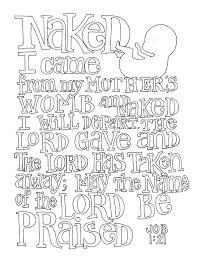 NAKED
I came
from my MOTHER'S
WOMB and NAKED
I WILL DEPART. THE
LORD GAVE and
THE LORD HAS TAKEN
away; MAY THE NAME
of the LORD BE
PRAISED
JOB
1:21